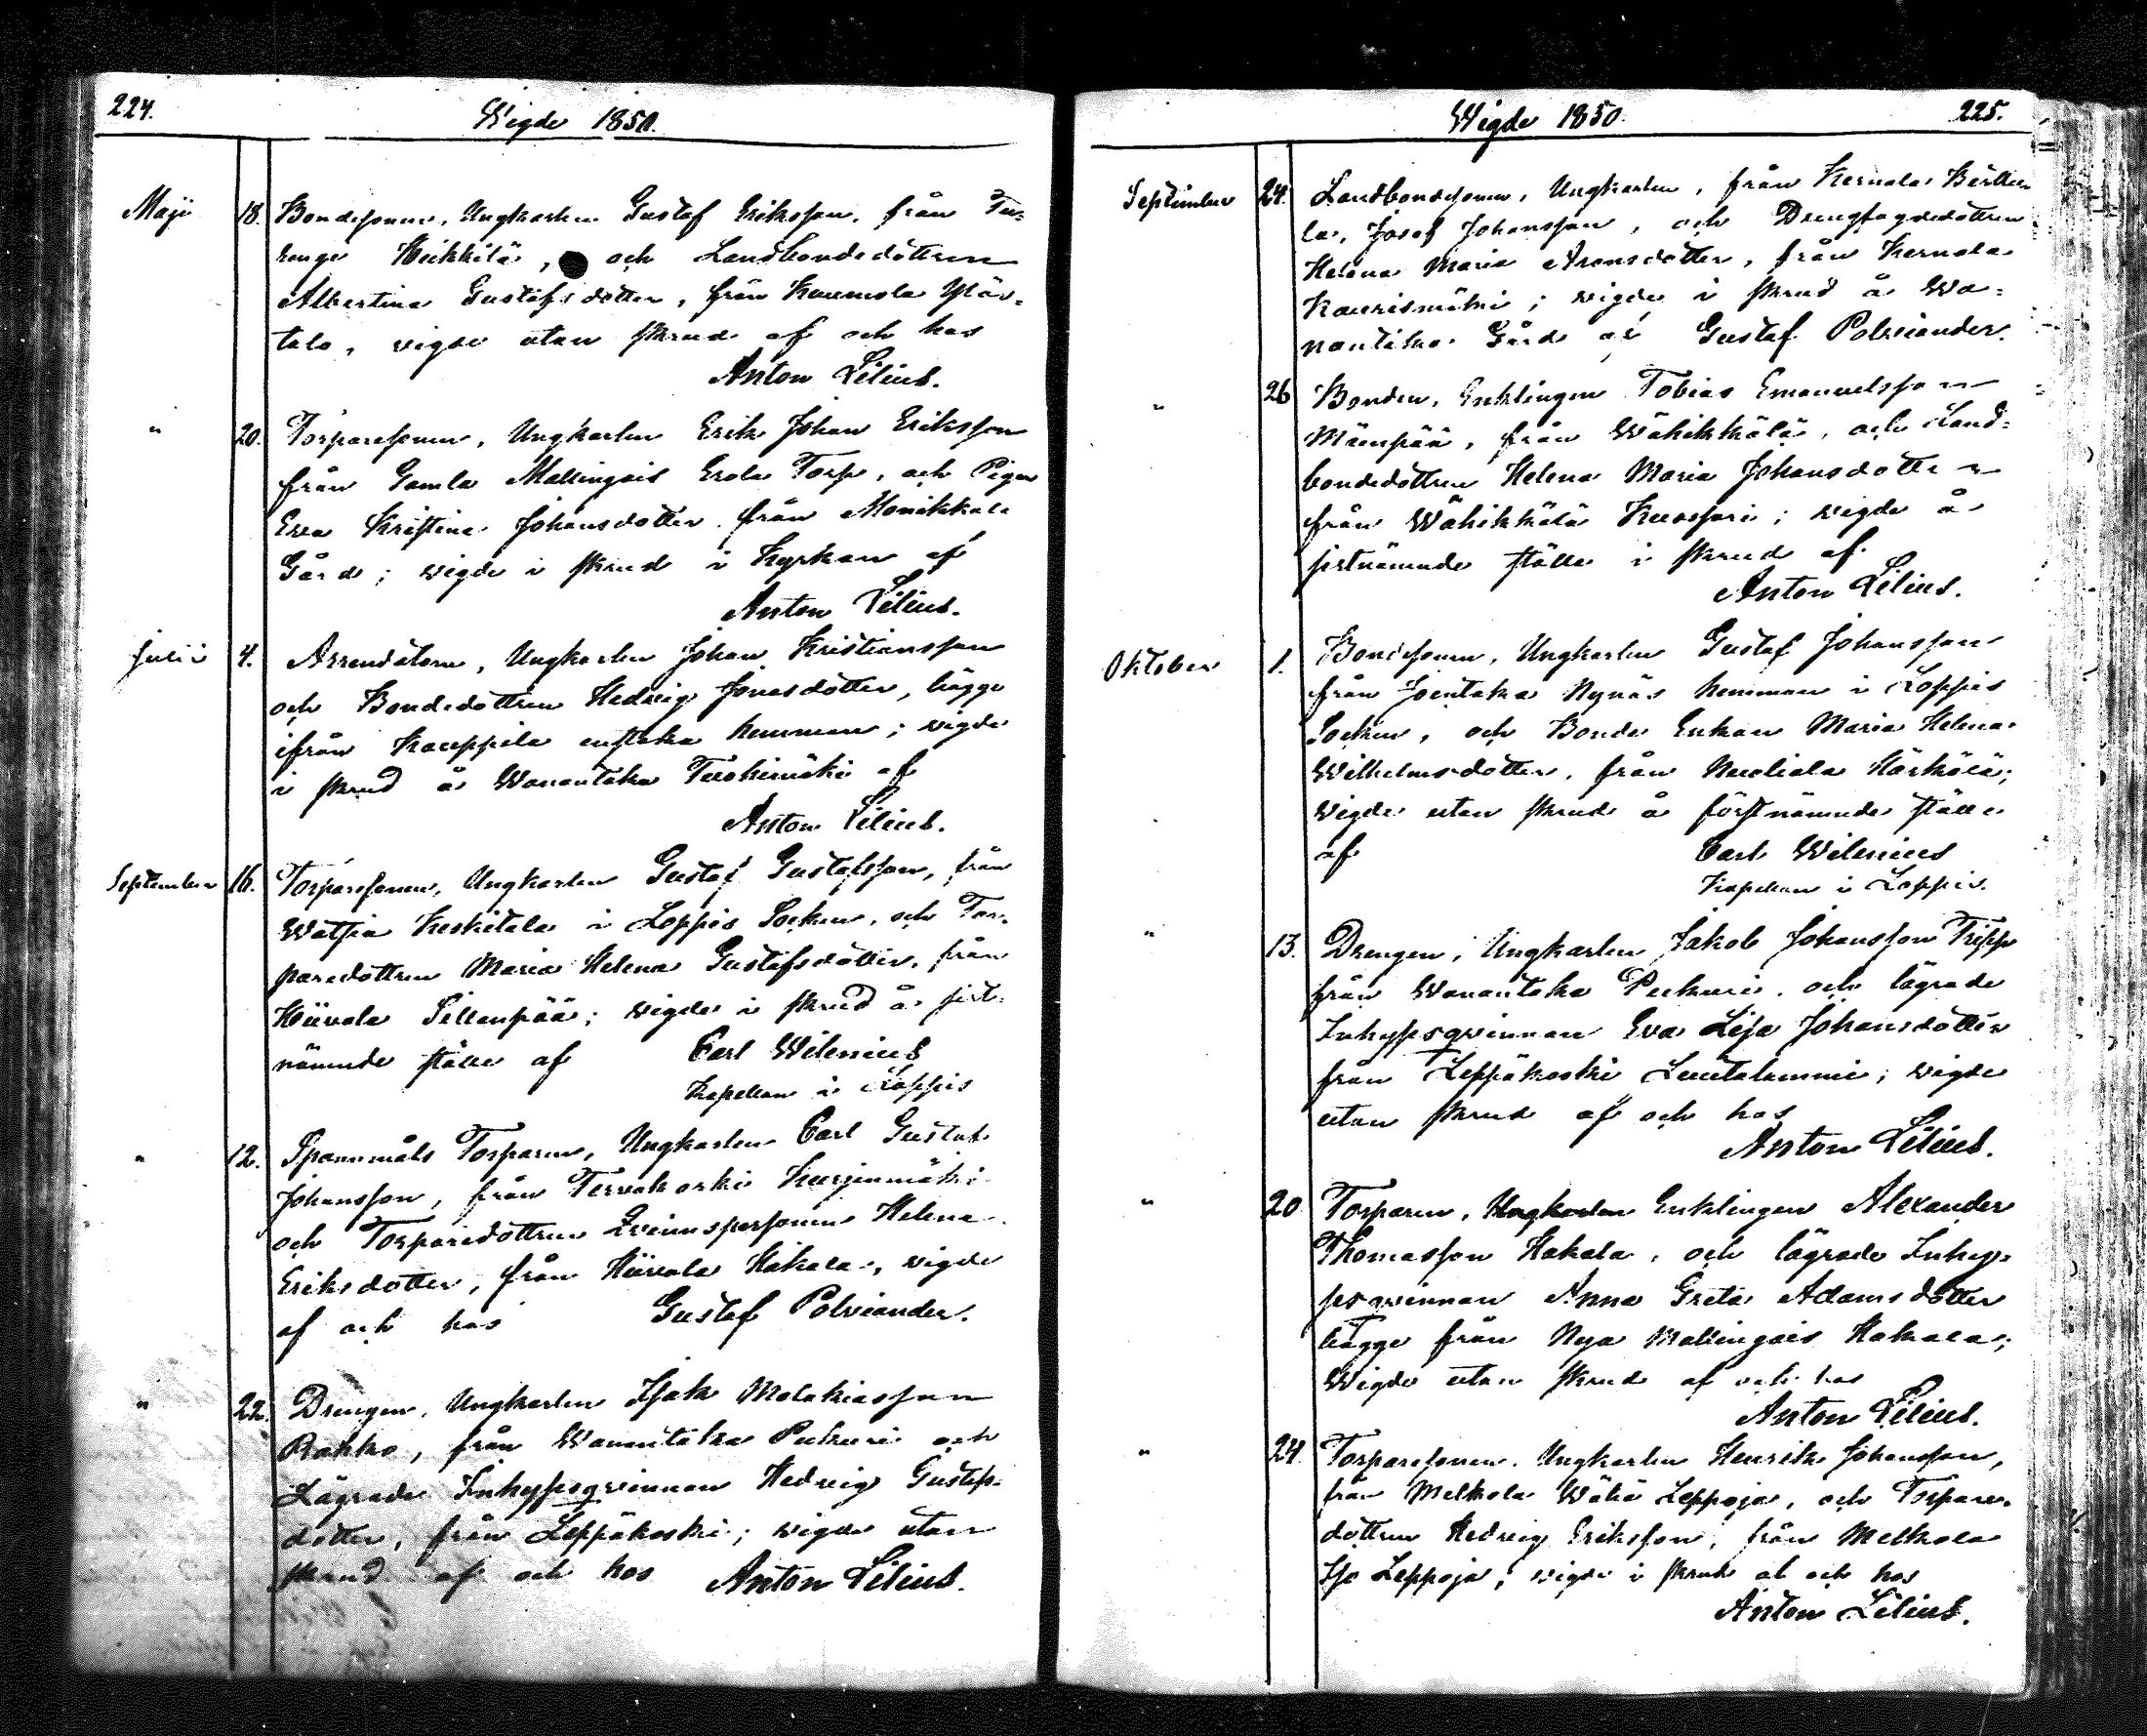 224.
Wigde 1850.
Maji 18. Bondesonen, Ungkarlen Gustaf Eriksson, från Tu-
renge Heikkilä, och Landbondedottren
Albertina Gustafsdotter, från Kuumola Yläs-
talo, vigde utan skrud af och hos
Anton Lilius.
" 20. Torparesonen, Ungkarlen Erik Johan Eriksson
från Gamla Mallingais Erola Torp, och Pigan
Eva Kristina Johansdotter från Monikkala
Gård; vigde i skrud i Kyrkan af
Anton Lilius.
Julii 4. Arrendatorn, Ungkarlen Johan Kristiansson
och Bondedottren Hedvig Jonasdotter, bägge
ifrån Kauppila enstaka hemman; vigde
i skrud å Wanantaka af
Anton Lilius.
September 16. Torparesonen, Ungkarlen Gustaf Gustafsson, från
Watsia Keskitalo i Loppis Socken, och Tor-
paredottren Maria Helena Gustafsdotter, från
Hiivola Sillanpää; vigde i skrud å sist-
nämnde ställe af Carl Wilenius
Kapellan i Loppis
" 12. Spannmåls Torparen, Ungkarlen Carl Gustaf
Johansson, från Tervakoski Kurjenmäki
och Torparedottren Qvinnspersonen Helena
Eriksdotter, från Hiivola Hakala, vigde
af och hos Gustaf Polviander.
" 22. Drengen, Ungkarlen Isak Malakiasson
Rakko, från Wanantaka Pukuri och
Lägrade Inhysesqvinnan Hedvig Gustafs-
dotter, från Leppäkoski; vigde utan
skrud af och hos Anton Lilius.
Wigde 1850.
225.
September 24. Landbondesonen, Ungkarlen, från Kernala Bertti-
la, Josef Johansson, och Drengfogdedottren
Helena Maria Aronsdotter, från Kernala
Kaurismäki; vigde i skrud å Wa-
nantaka Gård af Gustaf Polviander.
" 26 Bonden, Enklingen Tobias Emanuelsson
Mäenpää, från Wähikkälä, och Land-
bondedottren Helena Maria Johansdotter
från Wähikkälä Kuossari; vigde å
sistnämnde ställe i skrud af
Anton Lilius.
Oktober 1. Bondesonen, Ungkarlen Gustaf Johansson
från Joentaka Nynäs hemman i Loppis
Socken, och Bonde Enkan Maria Helena
Wilhelmsdotter, från Nuoliala Härkälä;
vigde utan skrud å förstnämnde ställe
af Carl Wilenius
Kapellan i Loppis.
" 13. Drengen, Ungkarlen Jakob Johansson Tripp
från Wanantaka Pukuri, och lägrade
Inhysesqvinnan Eva Lisa Johansdotter
från Leppäkoski Luutalammi; vigde
utan skrud af och hos
Anton Lilius.
" 20 Torparen, Ungkarlen Enklingen Alexander
Thomasson Hakala, och lägrade Inhy-
sesqvinnan Anna Greta Adamsdotter
bägge från Nya Mallingais Hakala;
Wigde utan skrud af och hos
Anton Lilius.
" 24. Torparesonen, Ungkarlen Henrik Johansson,
från Melkola Wähä Leppoja, och Torpare-
dottren Hedvig Eriksson, från Melkola
Iso Leppoja; vigde i skrud af och hos
Anton Lilius.